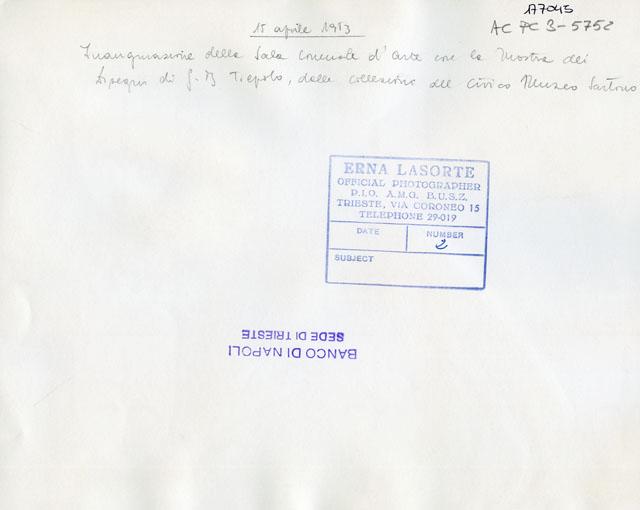 177045
AC PC 3-5752
15 aprile 1953
Inaugurazione della Sala Comunale d'Arte con la Mostra dei
Disegni di G. B Tiepolo, dalle collezione del Civico Museo Sartorio
ERNA LASORTE
OFFICIAL PHOTOGRAPHER
P.I.O. A.M.G. B.U.S.Z.
TRIESTE, VIA CORONEO 15
TELEPHONE 29-019
DATE NUMBER
2
SUBJECT
BANCO DI NAPOLI
SEDE DI TRIESTE